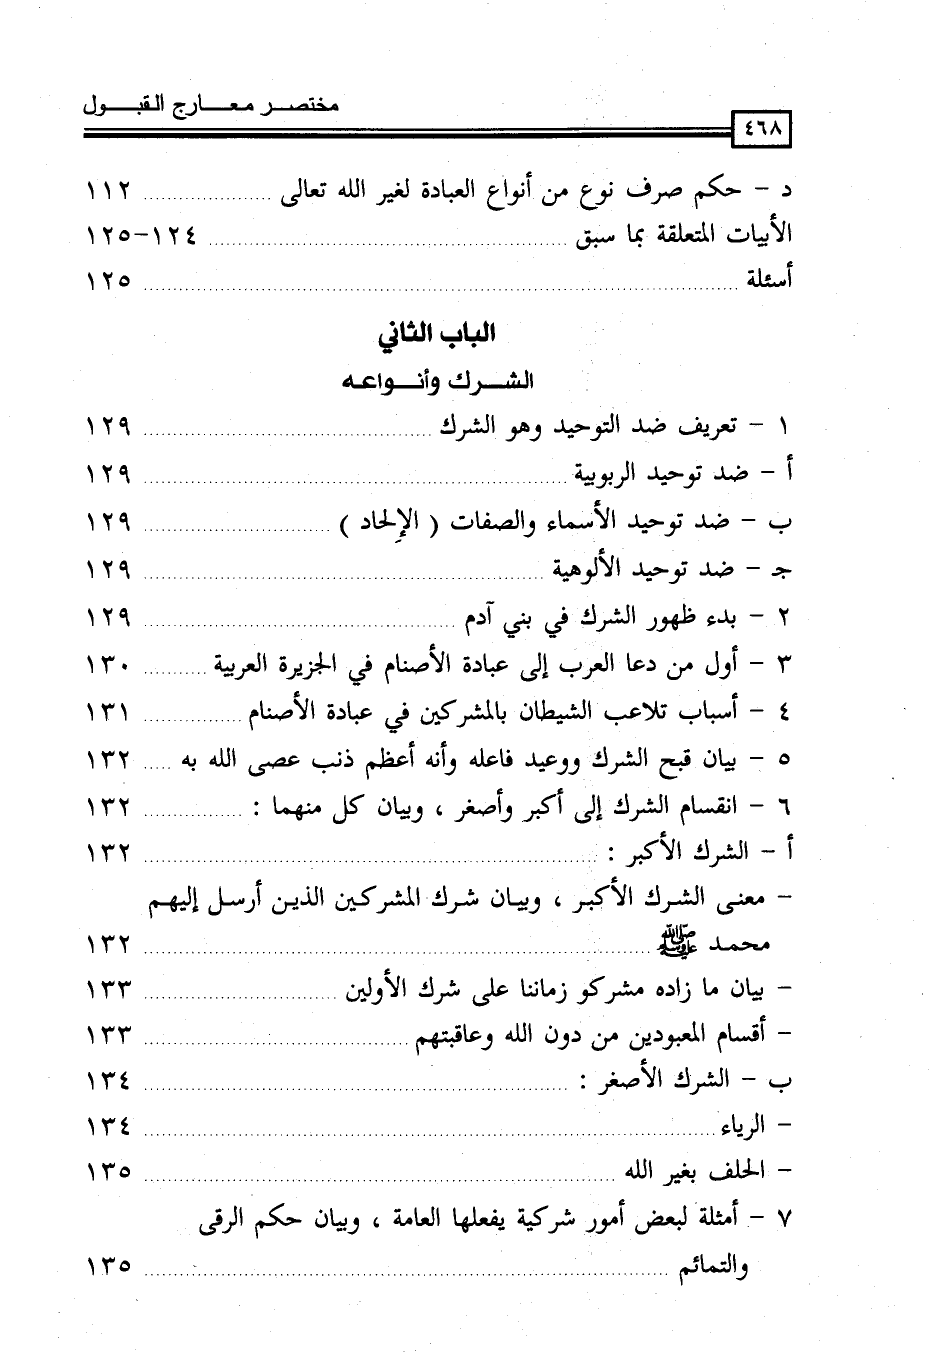 مختصر معارج القبول
٤٦٨
د - حكم صرف نوع من أنواع العبادة لغير الله تعالى ........ ١١٢
الأبيات المتعلقة بما سبق ........ ١٢٤-١٢٥
أسئلة ........ ١٢٥
الباب الثاني
الشرك وأنواعه
١ - تعريف ضد التوحيد وهو الشرك ........ ١٢٩
أ - ضد توحيد الربوبية ........ ١٢٩
ب - ضد توحيد الأسماء والصفات ( الإلحاد ) ........ ١٢٩
جـ - ضد توحيد الألوهية ........ ١٢٩
٢ - بدء ظهور الشرك في بني آدم ........ ١٢٩
٣ - أول من دعا العرب إلى عبادة الأصنام في الجزيرة العربية ........ ١٣٠
٤ - أسباب تلاعب الشيطان بالمشركين في عبادة الأصنام ........ ١٣١
٥ - بيان قبح الشرك ووعيد فاعله وأنه أعظم ذنب عصى الله به ..... ١٣٢
٦ - انقسام الشرك إلى أكبر وأصغر ، وبيان كل منهما : ........ ١٣٢
أ - الشرك الأكبر : ........ ١٣٢
- معنى الشرك الأكبر ، وبيان شرك المشركين الذين أرسل إليهم
محمد ﷺ ........ ١٣٢
- بيان ما زاده مشركو زماننا على شرك الأولين ........ ١٣٣
- أقسام المعبودين من دون الله وعاقبتهم ........ ١٣٣
ب - الشرك الأصغر : ........ ١٣٤
- الرياء ........ ١٣٤
- الحلف بغير الله ........ ١٣٥
٧ - أمثلة لبعض أمور شركية يفعلها العامة ، وبيان حكم الرقى
والتمائم ........ ١٣٥